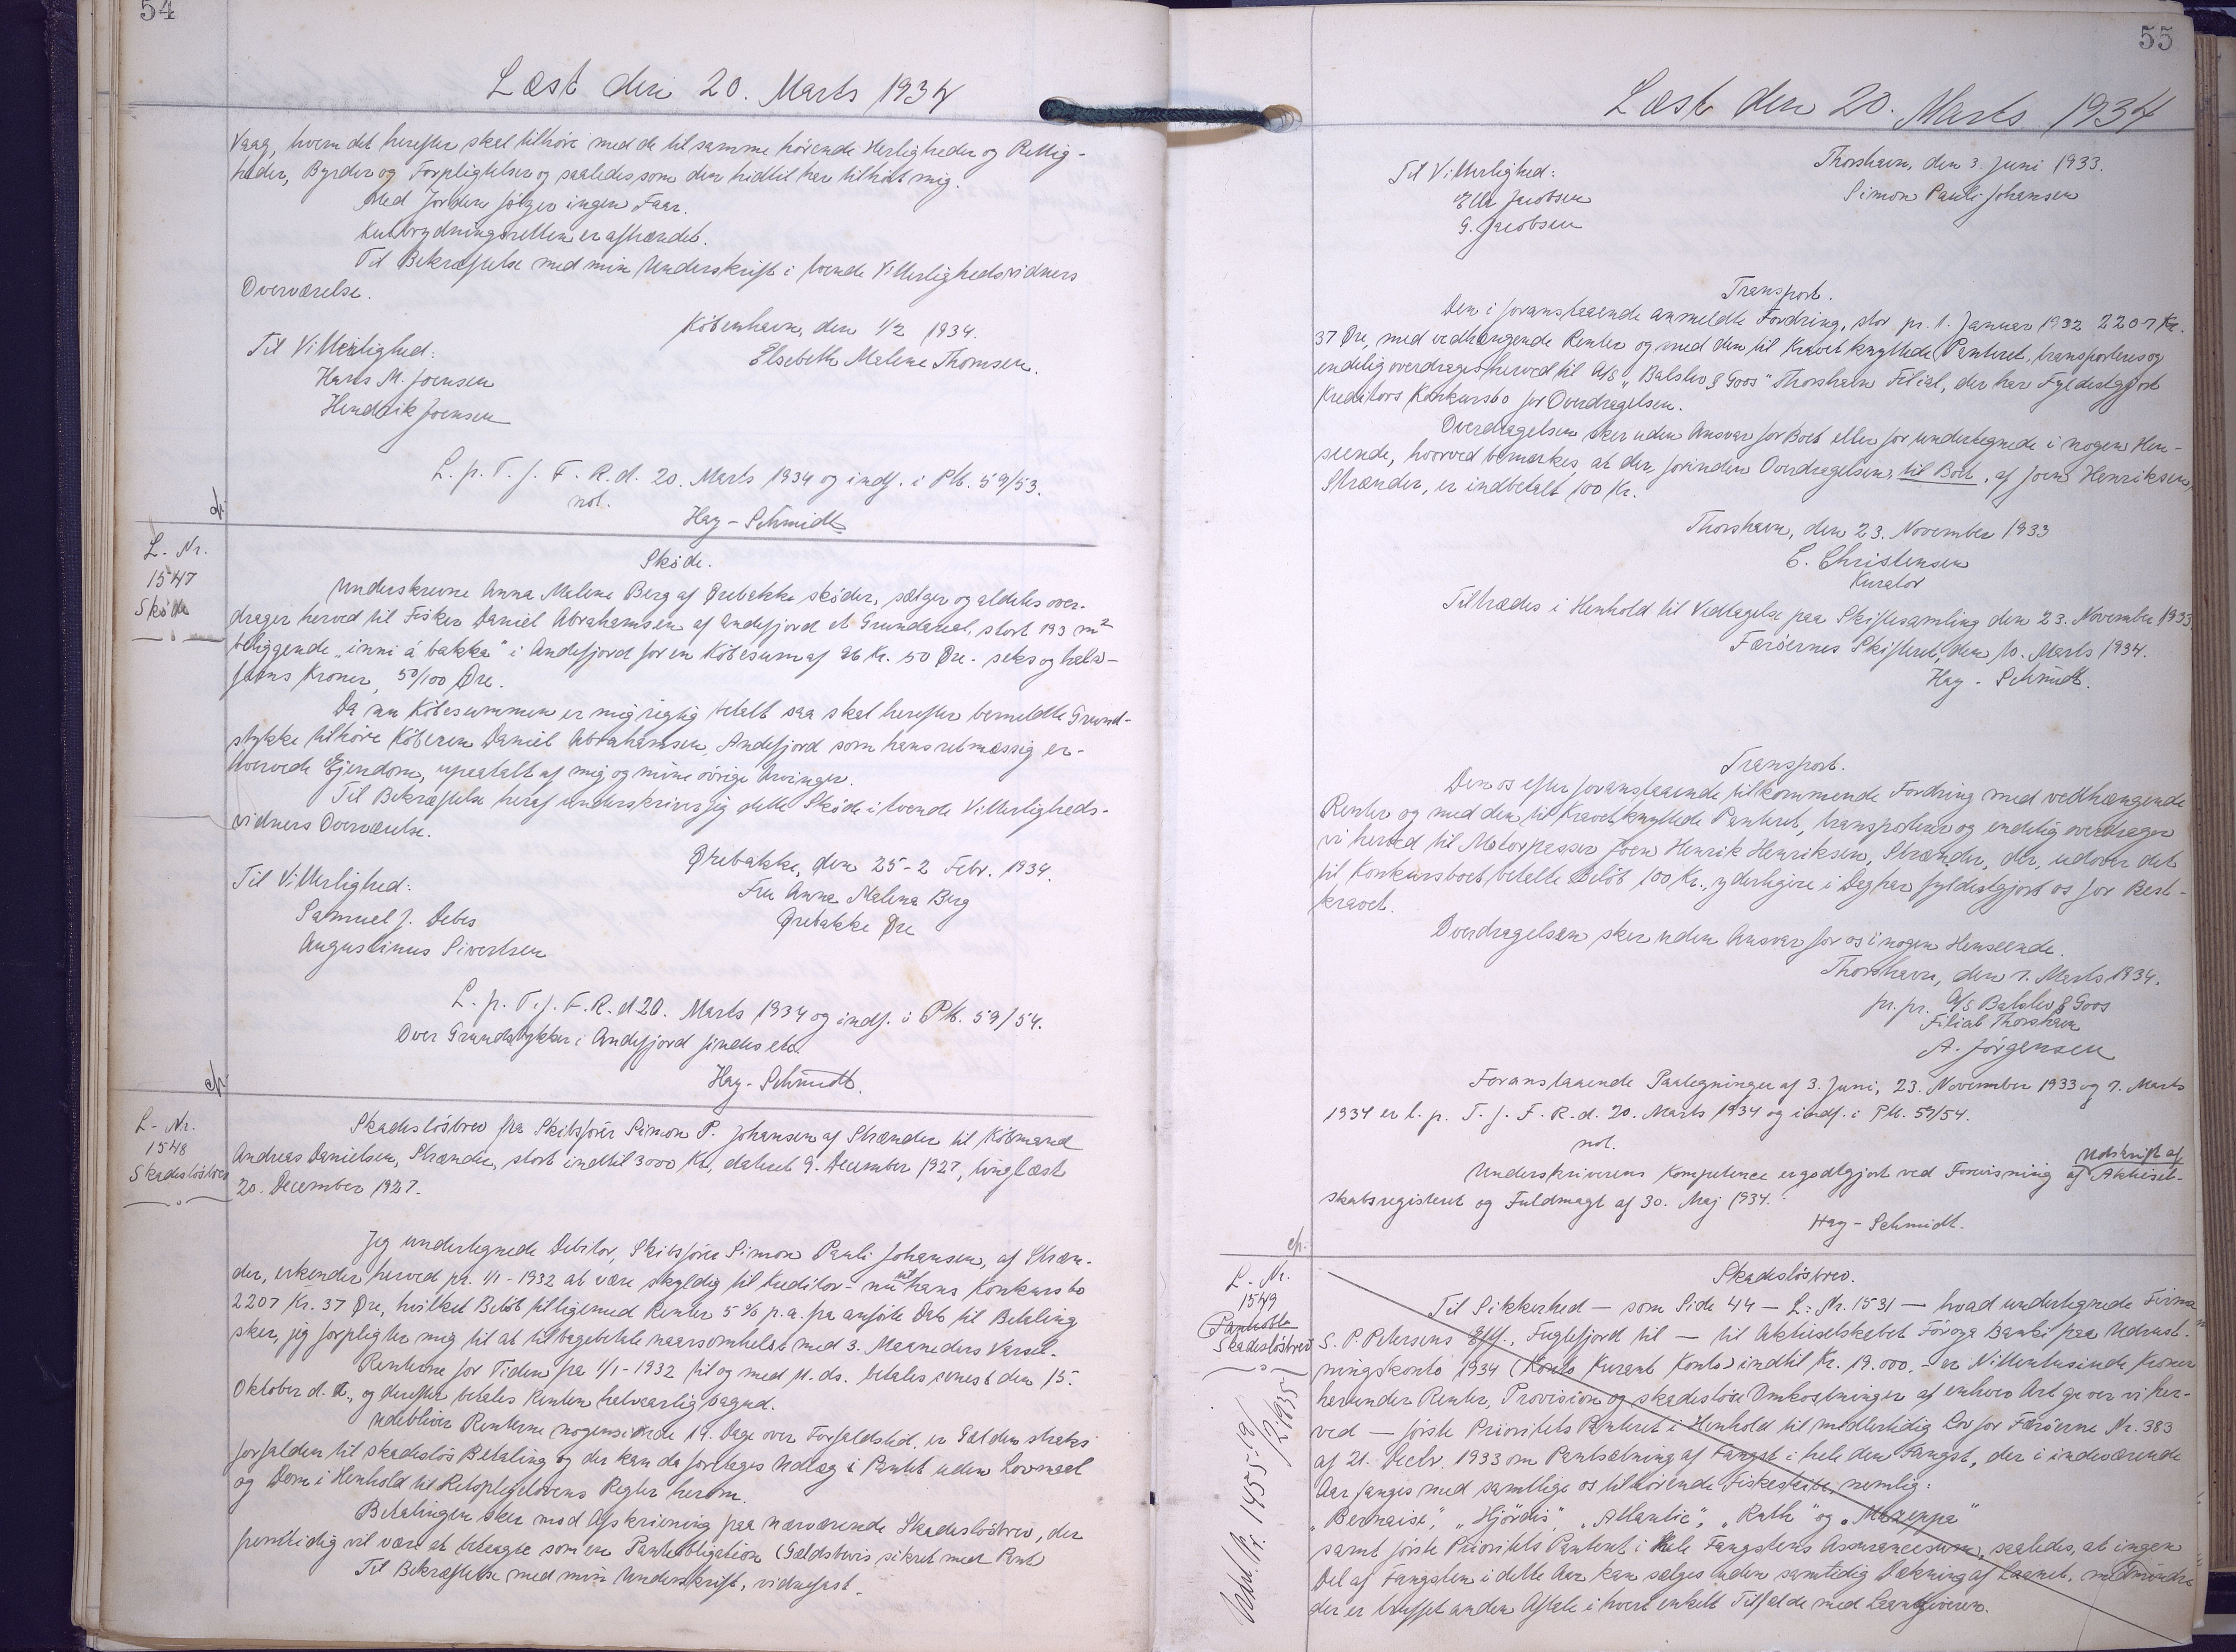 54
Læst den 20. Marts 1934
Vaag, hvem det herefter skal tilhøre med de til samme hørende Herligheder og Rettig-
heder, Byrder og Forpligtelser og saaledes som den hidtil har tilhørt mig.
Med Jorden følger ingen Faar.
Kulbrydningsretten er afhændet.
Til Bekræftelse med min Underskrift i tvende Vitterlighedsvidners
Overværelse.
København, den 1/2 1934.
Til Vitterlighed:
Elsebeth Malene Thomsen.
Hans M. Joensen
Hendrik Joensen
L. p. T. f. F. R. d. 20. Marts 1934 og indf. i Pb. 59/53.
not.
Hay-Schmidt
L. Nr.
1547
Skøde
Skøde.
Underskrevne Anna Malene Berg af Ørebakke skøder, sælger og aldeles over-
drager herved til Fisker Daniel Abrahamsen af Andefjord et Grundareal, stort 193 m²
beliggende „inni á bakka" i Andefjord for en Købesum af 96 Kr. 50 Øre - seks og halv-
fems Kroner, 50/100 Øre.
Da nu Købesummen er mig rigtig betalt saa skal herefter bemeldte Grund-
stykke tilhøre Køberen Daniel Abrahamsen, Andefjord som hans retmæssig er-
hvervede Ejendom, upaatalt af mig og mine øvrige Arvinger.
Til Bekræftelse heraf underskriver jeg dette Skøde i tvende Vitterligheds-
vidners Overværelse.
Ørebakke, den 25-2 Febr. 1934.
Til Vitterlighed:
Fru Anna Malena Berg
Samuel J. Debes
Ørebakke Øre
Augustinus Sivertsen
L. p. T. f. F. R. d 20. Marts 1934 og indf. i Pb. 59/54.
Over Grundstykker i Andefjord findes
Hay-Schmidt.
L. Nr.
1548
Skadesløsbrev
Skadesløsbrev fra Skibsfører Simon P. Johansen af Strænder til Købmand
Andreas Danielsen, Strænder, stort indtil 3000 Kr., dateret 9. December 1927, tinglæst
20. December 1927.
Jeg undertegnede Debitor, Skibsfører Simon Pauli Johansen, af Stræn-
der, erkender herved pr. 1/1-1932 at være skyldig til Kreditor - nu til hans Konkursbo
2207 Kr. 37 Øre, hvilket Beløb tilligemed Renter 5% p. a. fra anførte Dato til Betaling
sker, jeg forpligter mig til at tilbagebetale naarsomhelst med 3. Maaneders Varsel.
Renterne for Tiden fra 1/1-1932 til og med 11. ds. betales senest den 15.
Oktober d. A., og derefter betales Renten halvaarlig bagud.
Udebliver Renterne nogensinde 14. Dage over Forfaldstid, er Gælden straks
forfalden til skadesløs Betaling og der kan da foretages Udlæg i Pantet uden Lovmaal
og Dom i Henhold til Retsplejelovens Regler herom.
Betalingen sker mod Afskrivning paa nærværende Skadesløsbrev, der
fremtidig vil være at betragte som en Panteobligation (Gældsbevis sikret med Pant)
Til Bekræftelse med min Underskrift, vidnefast.
55
Læst den 20. Marts 1934
Thorshavn, den 3. Juni 1933.
Til Vitterlighed:
Simon Pauli Johansen
Ella Jacobsen
G. Jacobsen
Transport.
Den i foranstaaende anmeldte Fordring, stor pr. 1. Januar 1932 2207 Kr.
37 Øre, med vedhængende Renter og med den til Kravet knyttede Panteret, transporteres og
endelig overdrages herved til A/S „Balslev & Goos" Thorshavn Filial, der har Fyldestgjort
Kreditors Konkursbo for Overdragelsen.
Overdragelsen sker uden Ansvar for Boet eller for undertegnede i nogen Hen-
seende, hvorved bemærkes, at der, forinden Overdragelsen, til Boet, af Joen Henriksen,
Strænder, er indbetalt 100 Kr.
Thorshavn, den 23. November 1933
C. Christensen
Kurator
Tiltrædes i Henhold til Vedtagelse paa Skiftesamling den 23. November 1933
Færøernes Skifteret, den 10. Marts 1934.
Hay-Schmidt.
Transport.
Den os efter foranstaaende tilkommende Fordring med vedhængende
Renter og med den til Kravet knyttede Panteret, transporterer og endelig overdrager
vi herved til Motorpasser Joen Henrik Henriksen, Strænder, der, udover det
til Konkursboet betalte Beløb 100 Kr., yderligere i Dag har fyldestgjort os for Rest-
kravet.
Overdragelsen sker uden Ansvar for os i nogen Henseende.
Thorshavn, den 7. Marts 1934.
pr. pr. A/S Balslev & Goos
Filial Thorshavn
A. Jørgensen
Foranstaaende Paategninger af 3. Juni, 23. November 1933 og 7. Marts
1934 er l. p. T. f. F. R. d. 20. Marts 1934 og indf. i Pb. 59/54.
not.
Underskriverens Kompetence er godtgjort ved Forevisning af Udskrift af Aktiesel-
skabsregisteret og Fuldmagt af 30. Maj 1934.
Hay-Schmidt.
L. Nr.
1549
Skadesløsbrev
Skadesløsbrev.
Til Sikkerhed — som Side 44 — L. Nr. 1531 — hvad undertegnede Firma
S. P. Petersens Eftf., Fuglefjord til — til Aktieselskabet Føroya Banki paa Udrust-
ningskonto 1934 (Konto Kurant Konto) indtil Kr. 19.000.- er Nittentusinde Kroner
herunder Renter, Provision og skadesløse Omkostninger af enhver Art giver vi her-
ved — første Prioritets Panteret i Henhold til midlertidig Lov for Færøerne Nr. 383
af 21. Decbr. 1933 om Pantsætning af Fangst i hele den Fangst, der i indeværende
Aar fanges med samtlige os tilhørende Fiskeskibe, nemlig:
„Bernaise", „Hjördis", „Atlantic", „Ruth" og „Mazeppa"
samt første Prioritets Panteret i hele Fangstens Assurancesum, saaledes, at ingen
Del af Fangsten i dette Aar kan sælges uden samtidig Dækning af Laanet, medmindre
der er truffet anden Aftale i hvert enkelt Tilfælde med Laangiveren.